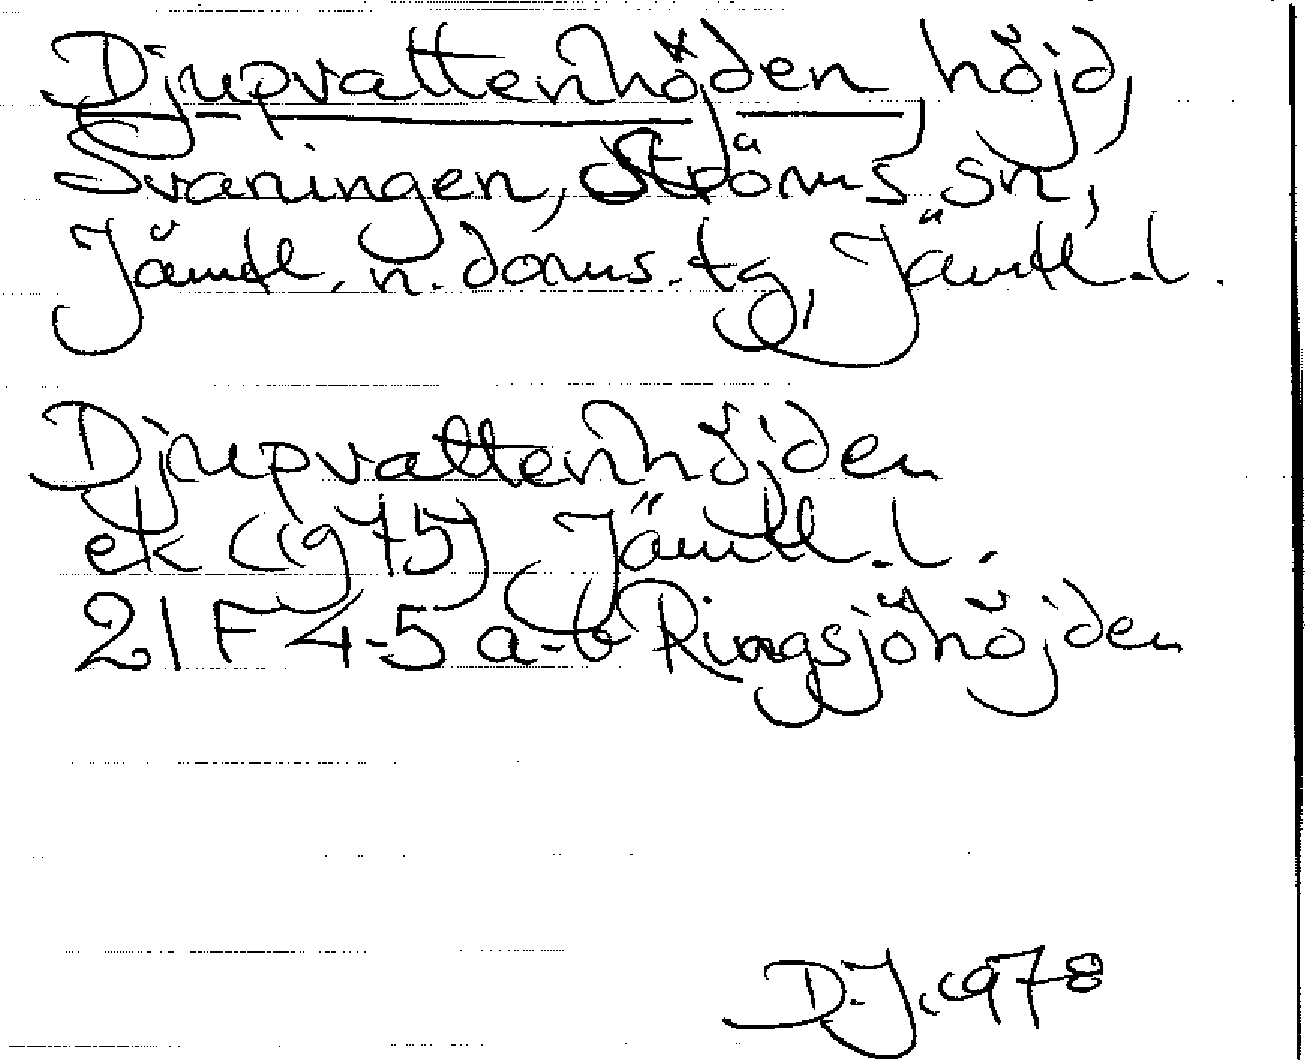 Djupvattenhöjden, höjd,
Svaningen, Ströms sn,
Jämtl. n. doms. tg, Jämtl. l.
Djupvattenhöjden
ek (1975) Jämtl. l.
21 F 4-5 a-b Ringsjöhöjden
D.J. 1978